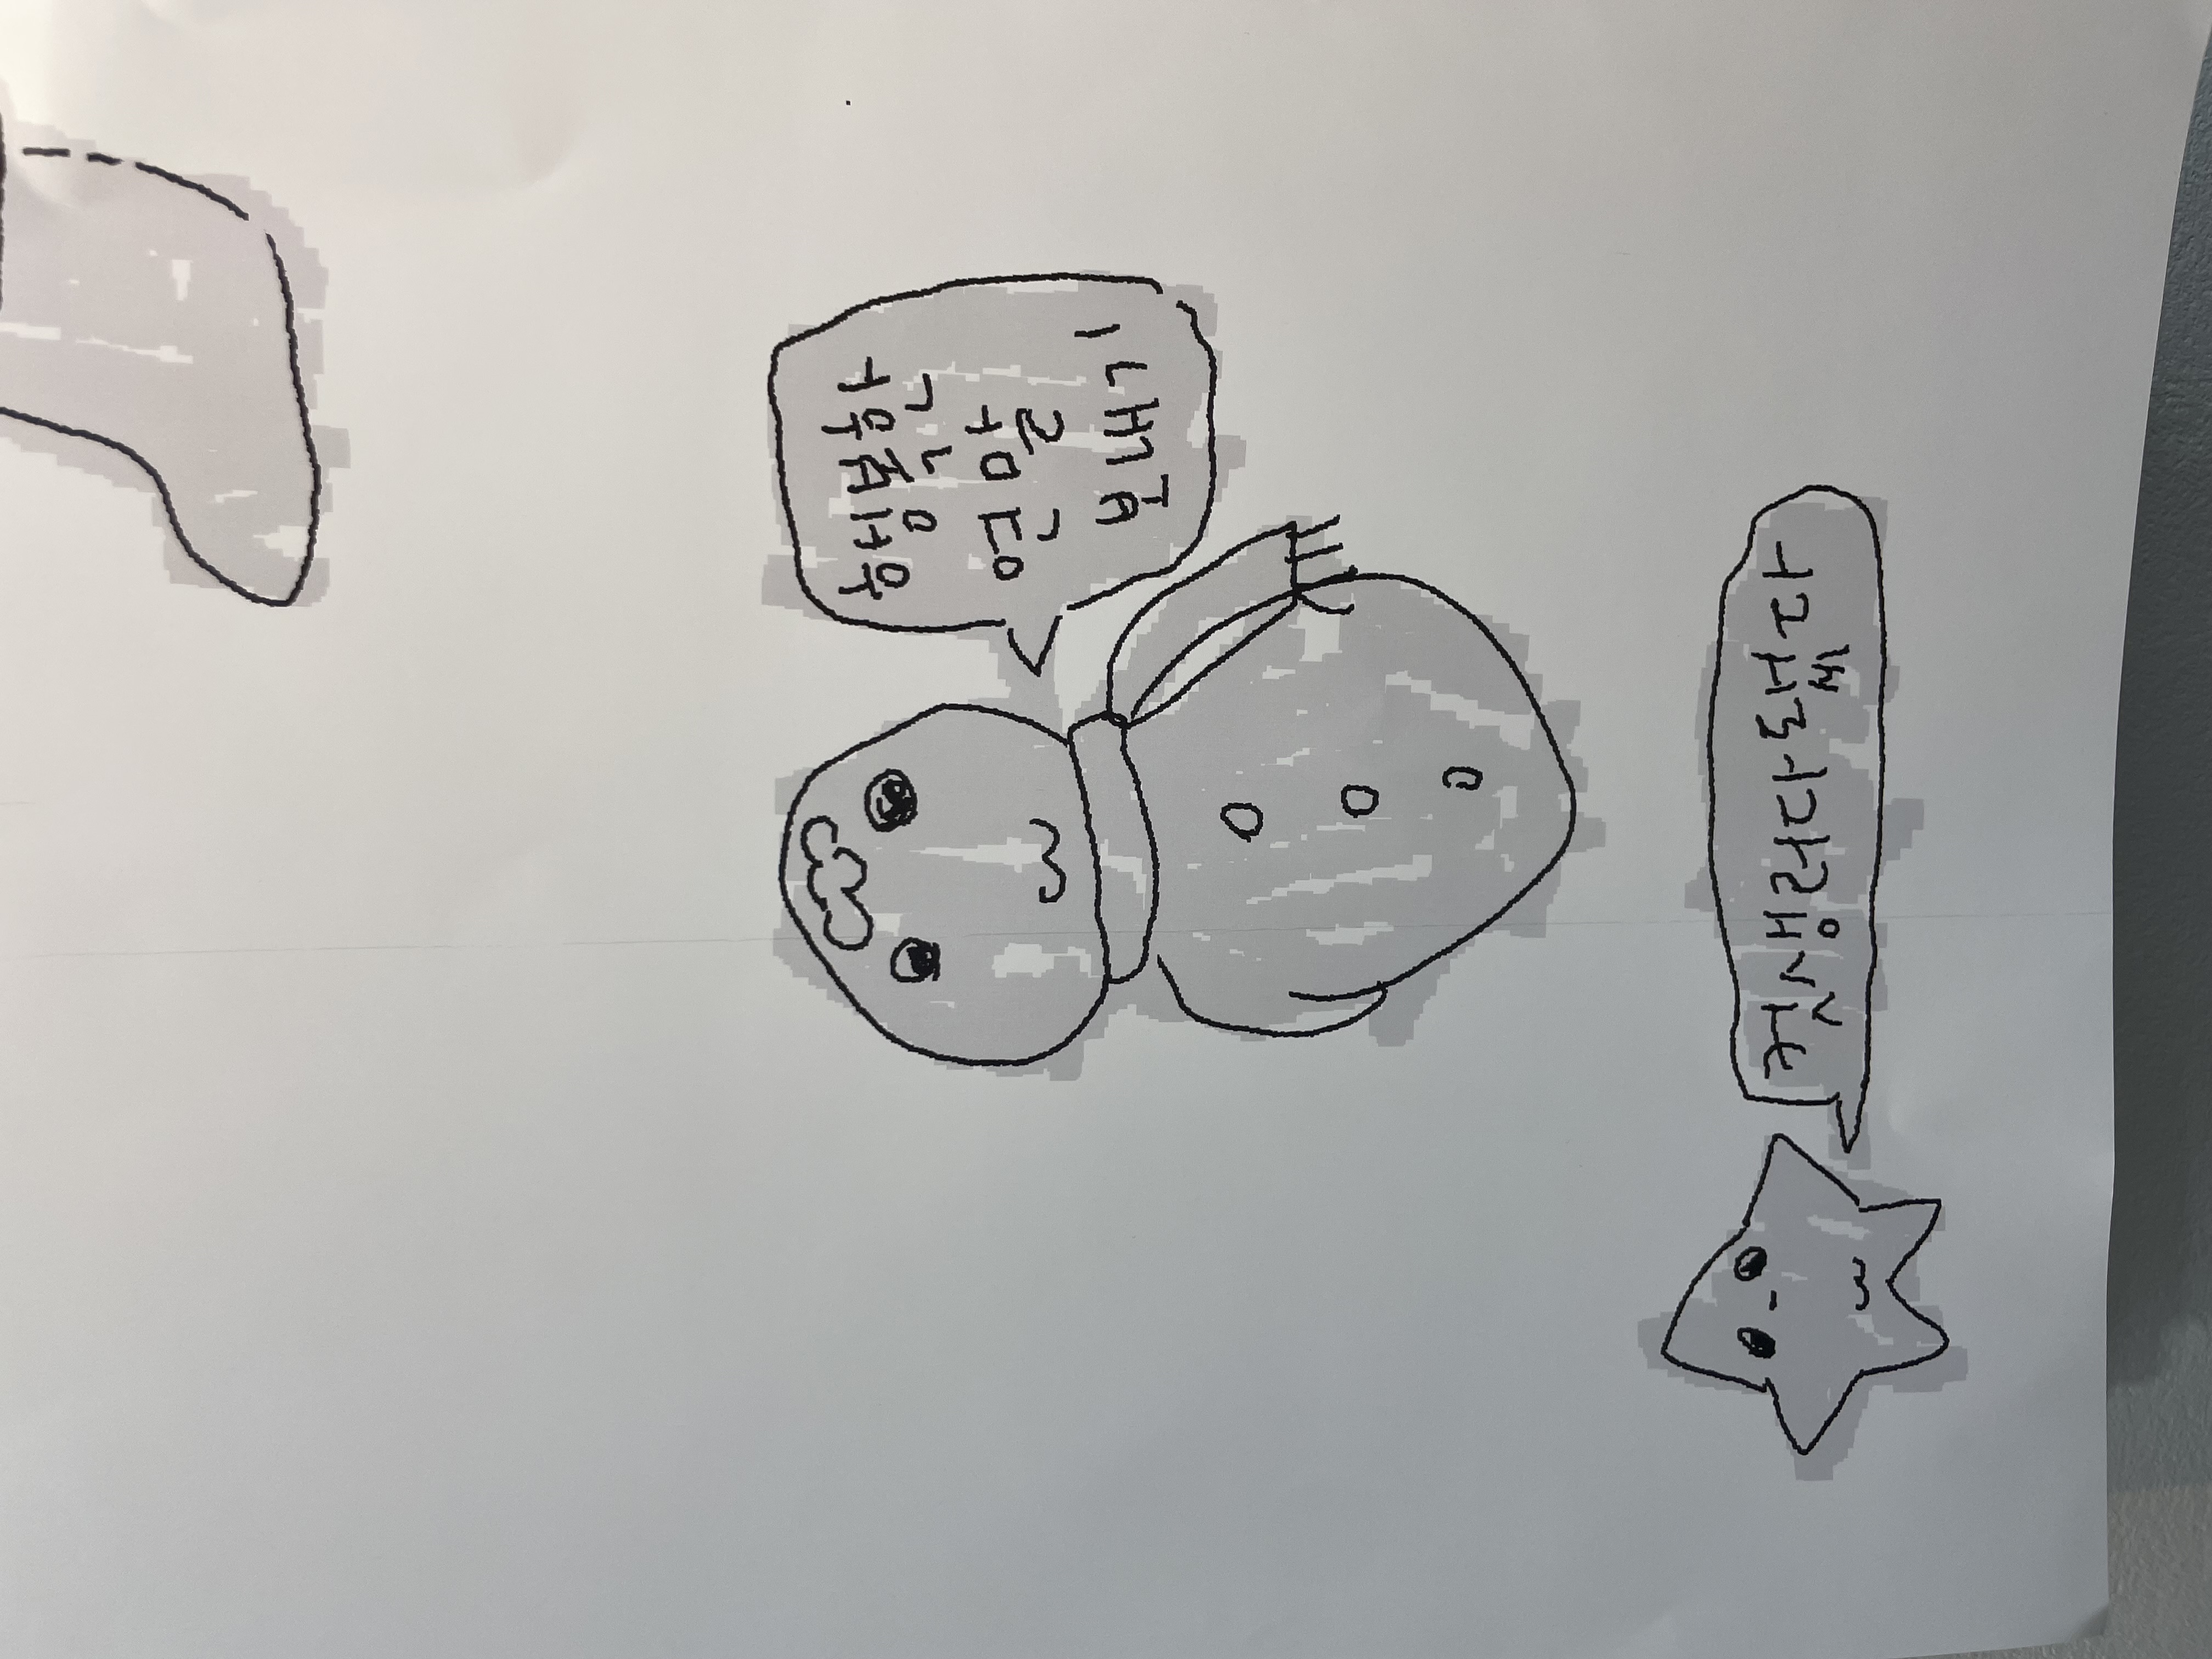 행복한
연말
보내기
것생러다됐다